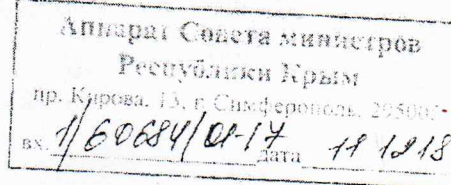 Аппарат Совета министров
Республики Крым
пр. Кирова, 13, г. Симферополь, 295005
вх. 1/60684/01-17 дата 11 12 18